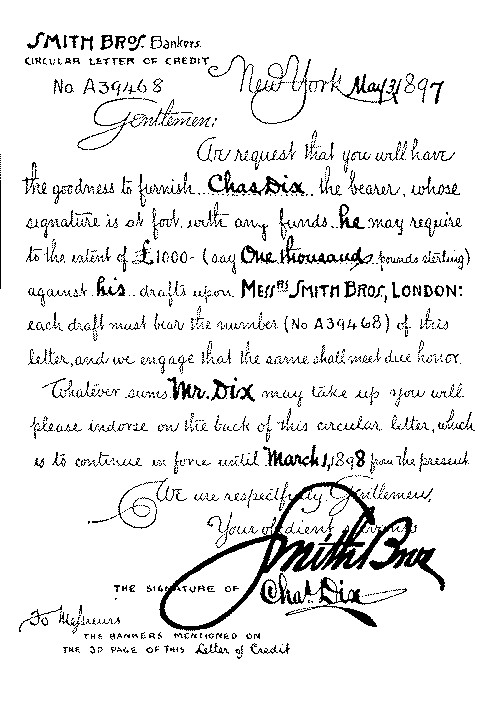 SMITH BROS. Bankers.
CIRCULAR LETTER OF CREDIT
No A39468
New York May 31 1897
Gentlemen:
We request that you will have
the goodness to furnish Chas. Dix the bearer, whose
signature is at foot, with any funds he may require
to the extent of £1000- (say One thousand pounds sterling)
against his drafts upon MESSRS SMITH BROS., LONDON:
each draft must bear the number (No A39468) of this
letter, and we engage that the same shall meet due honor.
Whatever sums Mr. Dix may take up you will
please indorse on the back of this circular letter, which
is to continue in force until March 1, 1898 from the present.
We are respectfully, Gentlemen,
Your obedient servants
Smith Bros
THE SIGNATURE OF Chas. Dix
To Messieurs
THE BANKERS MENTIONED ON
THE 3D PAGE OF THIS Letter of Credit